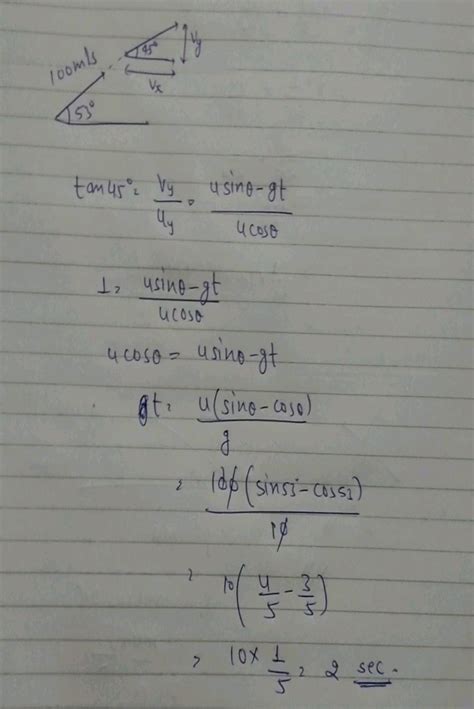 100m/s 45° Vy
Vx
53°
tan45° = Vy/uy = usinθ-gt/ucosθ
1 = usinθ-gt/ucosθ
ucosθ = usinθ-gt
gt = u(sinθ-cosθ)/g
= 100(sin53-cos53)/10
= 10(4/5 - 3/5)
= 10 × 1/5 = 2 sec.